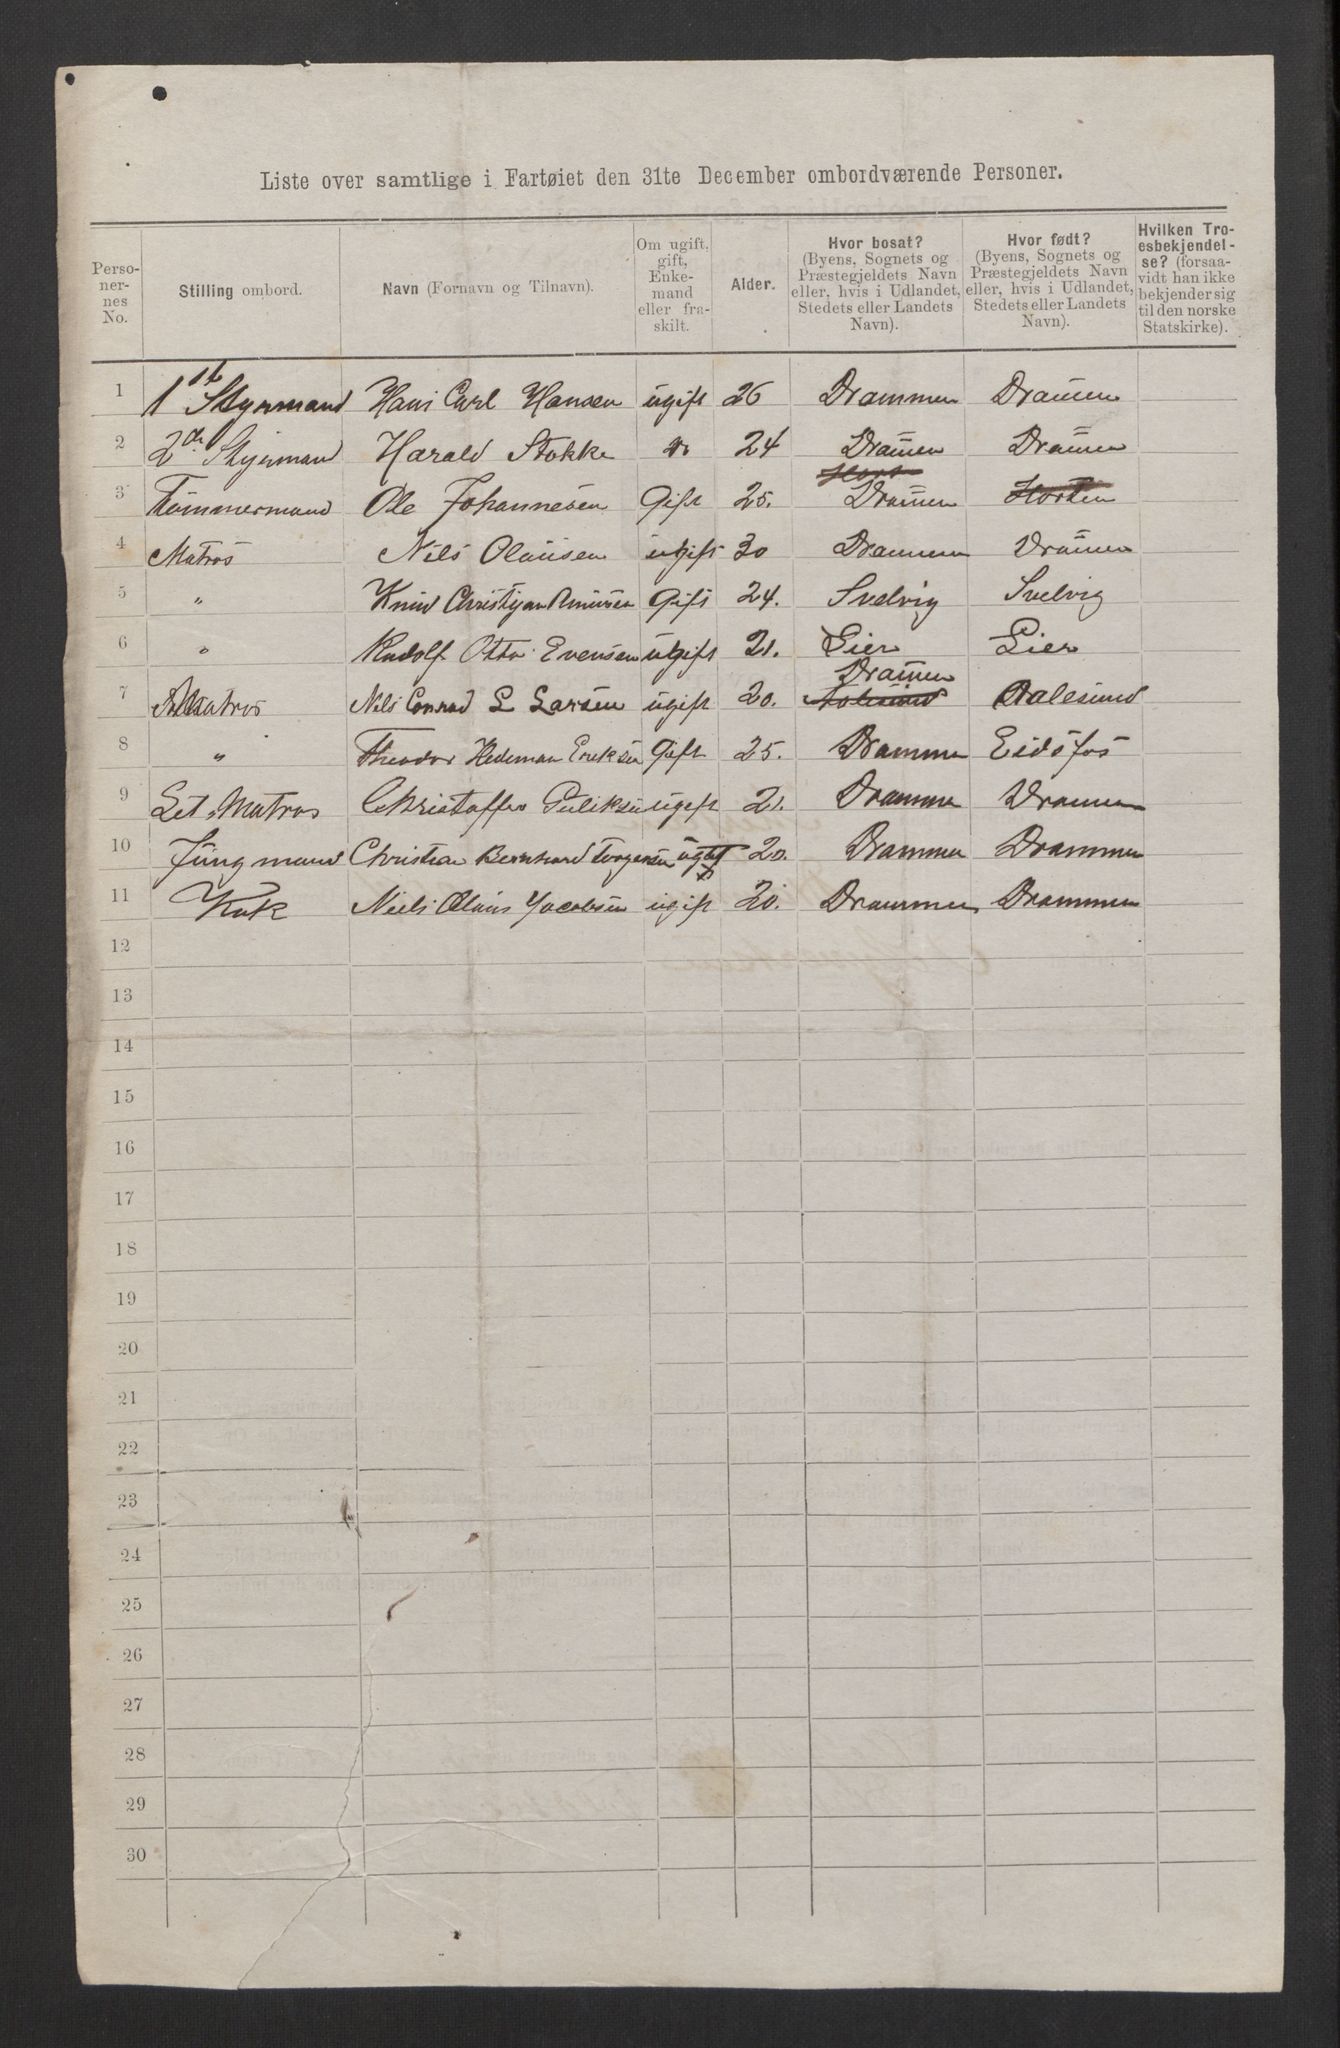 Liste over samtlige i Fartøiet den 31te December ombordværende Personer.
Perso-
ner-
nes
No.
Stilling ombord.
Navn (Fornavn og Tilnavn).
Om ugift,
gift,
Enke-
mand
eller fra-
skilt.
Alder.
Hvor bosat?
(Byens, Sognets og
Præstegjeldets Navn
eller, hvis i Udlandet,
Stedets eller Landets
Navn).
Hvor født?
(Byens, Sognets og
Præstegjeldets Navn
eller, hvis i Udlandet,
Stedets eller Landets
Navn).
Hvilken Tro-
esbekjendel-
se? (forsaa-
vidt han ikke
bekjender sig
til den norske
Statskirke).
1 1st Styrmand Hans Carl Hansen ugift 26 Drammen Dramen
2 2den Styrmand Harald Stokke do 24 Dramen Dramen
3 Tømmermand Ole Johannesen Gift 25. Hort Dramen Horten
4 Matros Nils Olausen ugift 30 Drammen Dramen
5 " Knud Christjan Gift 24. Svelvig Svelvig
6 " Rudolf Otto Evensen ugift 21. Lier Lier
7 Matros Nils Conrad L Larsen ugift 20. Dramen Aalesund Aalesund
8 " Theodor Hedeman Eriksen Gift 25. Drammen Eidsfos
9 Let. Matros Christoffer Guliksen ugift 21. Drammen Dramen
10 Jungmand Christian Bernhard Torgersen ugift 20. Drammen Drammen
11 Kok Niels Olaus Jacobsen ugift 20. Drammen Drammen
12
13
14
15
16
17
18
19
20
21
22
23
24
25
26
27
28
29
30